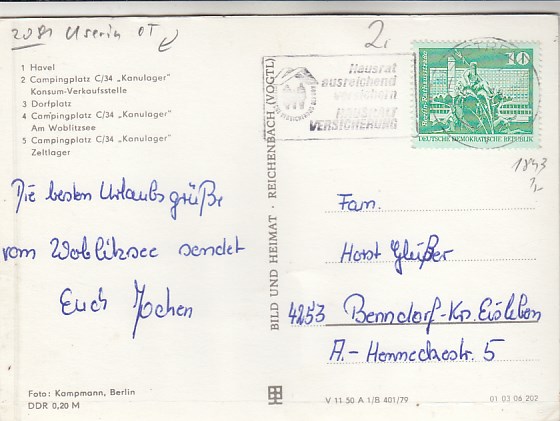 2081 Userin OT
2,
1 Havel
2 Campingplatz C/34 „Kanulager"
Konsum-Verkaufsstelle
3 Dorfplatz
4 Campingplatz C/34 „Kanulager"
Am Woblitzsee
5 Campingplatz C/34 „Kanulager"
Zeltlager
Hausrat
ausreichend
versichern
HAUSHALT
VERSICHERUNG
10
DEUTSCHE DEMOKRATISCHE REPUBLIK
1843
Die besten Urlaubsgrüße
vom Woblitzsee sendet
Euch Jochen
BILD UND HEIMAT · REICHENBACH (VOGTL)
Fam.
Horst Gleißer
4253 Benndorf-Krs. Eisleben
A.-Henneckestr. 5
Foto: Kampmann, Berlin
DDR 0,20 M
V 11 50 A 1/B 401/79
01 03 06 202